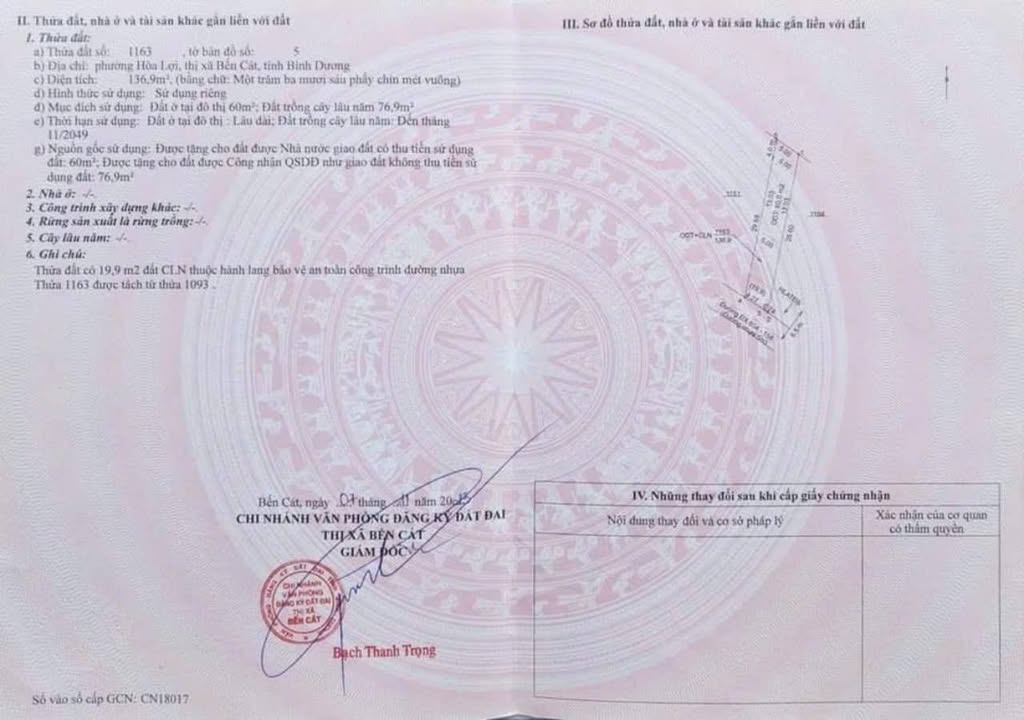 II. Thửa đất, nhà ở và tài sản khác gắn liền với đất
1. Thửa đất:
a) Thửa đất số: 1163 , tờ bản đồ số: 5
b) Địa chỉ: phường Hòa Lợi, thị xã Bến Cát, tỉnh Bình Dương
c) Diện tích: 136,9m², (bằng chữ: Một trăm ba mươi sáu phẩy chín mét vuông)
d) Hình thức sử dụng: Sử dụng riêng
đ) Mục đích sử dụng: Đất ở tại đô thị 60m²; Đất trồng cây lâu năm 76,9m²
e) Thời hạn sử dụng: Đất ở tại đô thị : Lâu dài; Đất trồng cây lâu năm: Đến tháng
11/2049
g) Nguồn gốc sử dụng: Được tặng cho đất được Nhà nước giao đất có thu tiền sử dụng
đất: 60m²; Được tặng cho đất được Công nhận QSDĐ như giao đất không thu tiền sử
dụng đất: 76,9m²
2. Nhà ở: -/-.
3. Công trình xây dựng khác: -/-.
4. Rừng sản xuất là rừng trồng:-/-.
5. Cây lâu năm: -/-.
6. Ghi chú:
Thửa đất có 19,9 m2 đất CLN thuộc hành lang bảo vệ an toàn công trình đường nhựa
Thửa 1163 được tách từ thửa 1093 .
III. Sơ đồ thửa đất, nhà ở và tài sản khác gắn liền với đất
5.00
5.00
ODT 60.0 m2
29.68
5.00
ODT+CLN 1163
136.9
HLATĐB
Bến Cát, ngày 07 tháng 11 năm 20
CHI NHÁNH VĂN PHÒNG ĐĂNG KÝ ĐẤT ĐAI
THỊ XÃ BẾN CÁT
GIÁM ĐỐC
CHI NHÁNH
VĂN PHÒNG
ĐĂNG KÝ ĐẤT ĐAI
THỊ XÃ
BẾN CÁT
Bạch Thanh Trọng
Số vào sổ cấp GCN: CN18017
IV. Những thay đổi sau khi cấp giấy chứng nhận
Nội dung thay đổi và cơ sở pháp lý
Xác nhận của cơ quan
có thẩm quyền